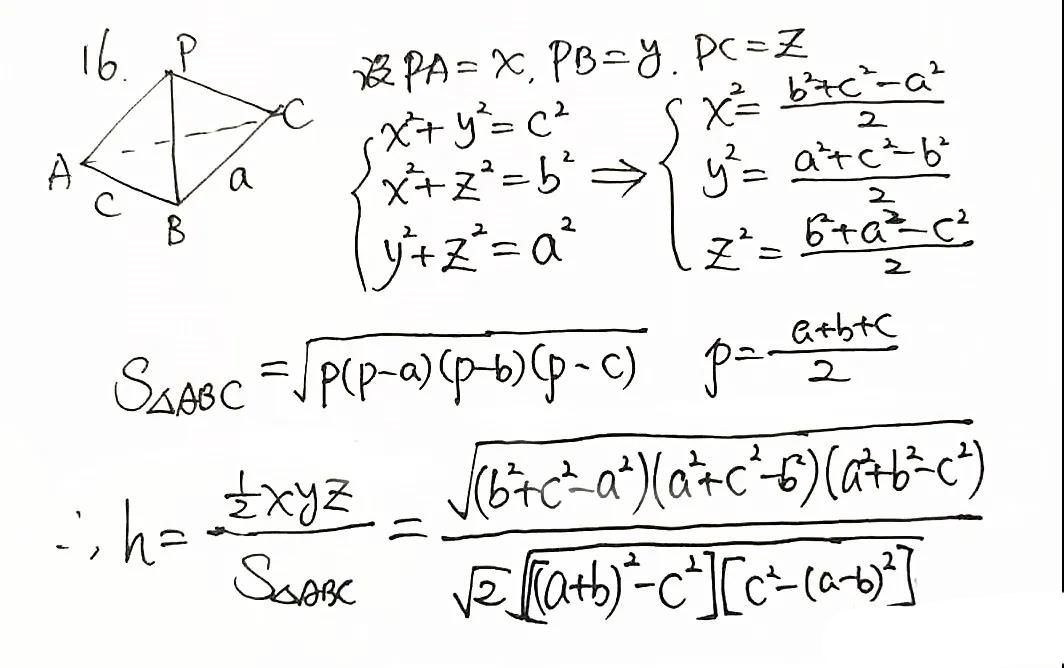 16.
P
A
B
C
c
a
设PA=x, PB=y. PC=z
{ x²+y²=c²
x²+z²=b²
y²+z²=a²
⇒ { x²=(b²+c²-a²)/2
y²=(a²+c²-b²)/2
z²=(b²+a²-c²)/2
S△ABC=√(p(p-a)(p-b)(p-c)) p=(a+b+c)/2
∴ h=(½xyz)/S△ABC=√((b²+c²-a²)(a²+c²-b²)(a²+b²-c²))/(√2√([(a+b)²-c²][c²-(a-b)²]))